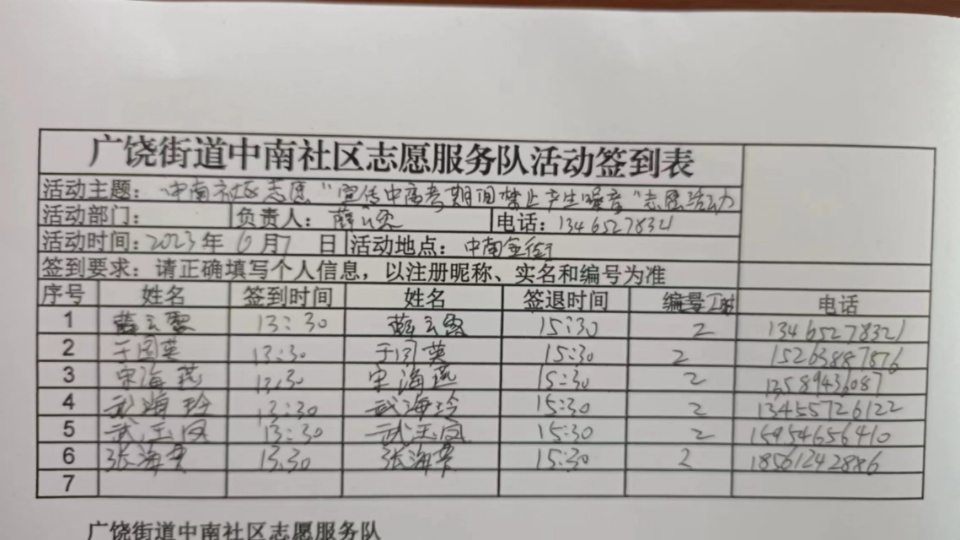 广饶街道中南社区志愿服务队活动签到表
活动主题：中南社区志愿"宣传中高考期间禁止产生噪音"志愿活动
活动部门： 负责人：薛云 电话：13465278321
活动时间：2023年6月7日 活动地点：中南金街
签到要求：请正确填写个人信息，以注册昵称、实名和编号为准
序号 姓名 签到时间 姓名 签退时间 编号工时 电话
1 薛云 13:30 薛云 15:30 2 13465278321
2 于国英 13:30 于国英 15:30 2 15263887876
3 宋海燕 13:30 宋海燕 15:30 2 13589436087
4 武海玲 13:30 武海玲 15:30 2 13455726122
5 武玉凤 13:30 武玉凤 15:30 2 15954656410
6 张海 13:30 张海 15:30 2 18561242886
7
广饶街道中南社区志愿服务队